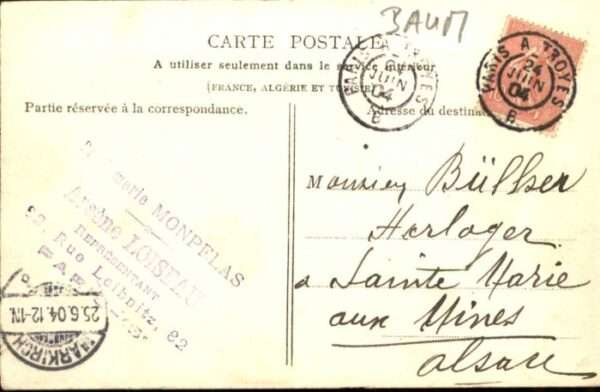 BAUM
CARTE POSTALE
A utiliser seulement dans le service intérieur
(FRANCE, ALGÉRIE ET TUNISIE)
Partie réservée à la correspondance.
Adresse du destinataire
PARIS A TROYES
24
JUIN
04
B
PARIS A TROYES
24
JUIN
04
B
MONPELAS
Arsène LOISEAU
REPRÉSENTANT
82, Rue Leibnitz, 82
PARIS
Monsieur Büllser
Horloger
a Sainte Marie
aux Mines
Alsace
25.6.04.12-1N.
MARKIRCH